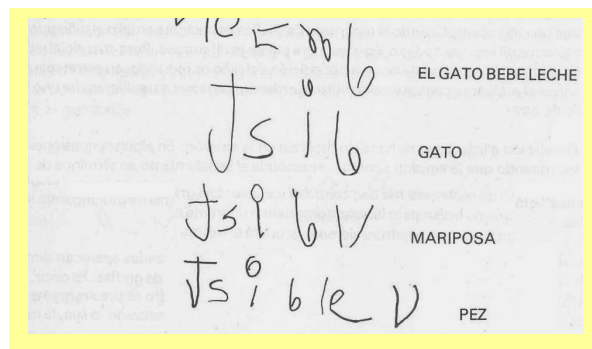 EL GATO BEBE LECHE
Js i b
GATO
Jsi b v
MARIPOSA
Js i b le v
PEZ